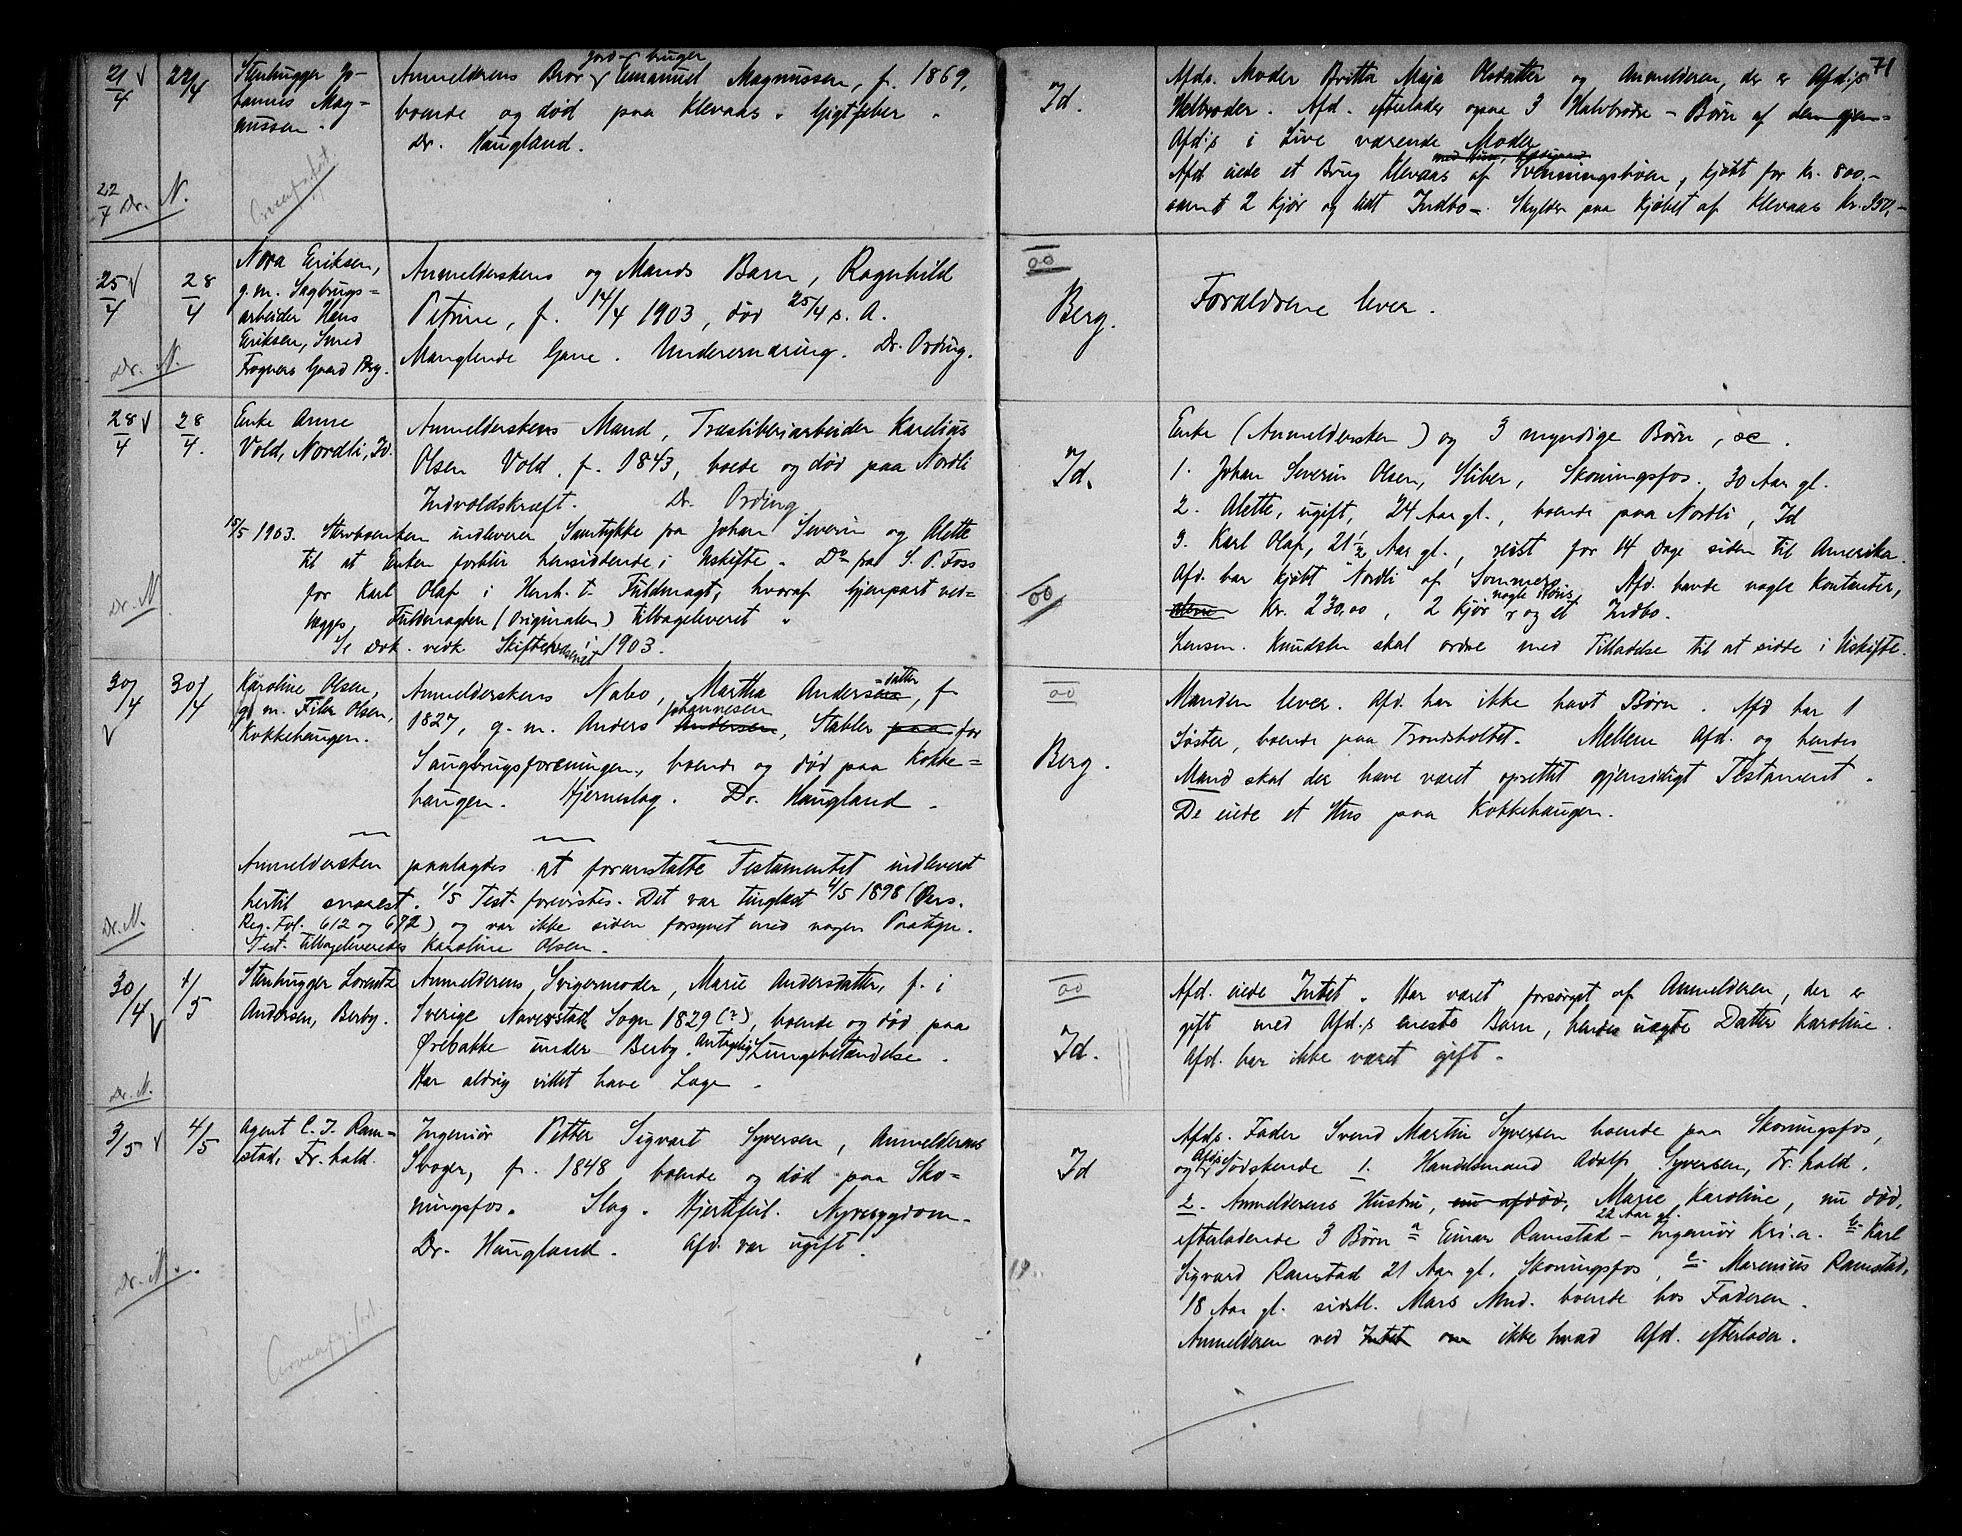 71
21/4 22/4 Stenhugger Jo-
hannes Mag-
nussen.
Anmelderens Bror Jordbruger Emanuel Magnussen, f. 1869,
boende og død paa Klevaas. Gigtfeber.
Dr. Haugland.
22/4 Dr. N.
Id.
Afds. Moder Britta Maja Olsdatter og Anmelderen, der er Afd:s
Helbroder. Afd. efterlader ogsaa 3 Halvbrødre - Børn af den gjen-
Afd:s i Live værende Moder
Afd eiede et Brug Klevaas af Svenningsbøen, kjøbt for Kr. 800,-
samt 2 Kjør og lidt Indbo -. Skylder paa Kjøbet af Klevaas Kr. 350,-
25/4 28/4 Nora Eriksen,
g. m. Sagbrugs=
arbeider Hans
Eriksen, Smed
Frogners Gaard Berg.
Anmelderskens og Mands Barn, Ragnhild
Petrine, f. 14/4 1903, død 25/4 s. A.
Manglende Gane. Underernæring. Dr. Ording.
Dr. N.
00
Berg.
Forældrene lever.
28/4 28/4. Enke Anne
Vold, Nordli, Id.
Anmelderskens Mand, Træsliberiarbeider Karelius
Olsen Vold, f. 1843, boede og død paa Nordli
Indvoldskræft. Dr. Ording
15/5 1903. Stervboenken indleverer Samtykke fra Johan Severin og Alette
til at Enken forblir hensiddende i Uskifte. Do fra S. P. Foss
for Karl Olaf i Henh. t. Fuldmagt, hvoraf Gjenpart ved=
lægges, Fuldmagten (Originalen) tilbageleveret
Se Dok. vedk Skiftevæsenet i 1903.
Dr. N.
Id.
00
Enke (Anmeldersken) og 3 myndige Børn, sc.
1. Johan Severin Olsen, Sliber, Skoningsfos. 30 Aar gl.
2. Alette, ugift, 24 Aar gl., boende paa Nordli, Id
3. Karl Olaf, 21 1/2 Aar gl., reist for 14 Dage siden til Amerika.
Afd. har kjøbt "Nordli" af Sommero. Afd. havde nogle Kontanter,
Kr. 230,00, 2 Kjør, nogle Høns, og et Indbo.
Lensm. Knudsen skal ordne med Tilladelse til at sidde i Uskifte.
30/4 30/4 Karoline Olsen,
g. m. Filer Olsen,
Kokkehaugen.
Anmelderskens Nabo, Martha Anders=datter, f.
1827, g. m. Anders Johannesen Andersen, Stabler paa for
Saugbrugsforeningen, boende og død paa Kokke=
haugen. Hjerneslag. Dr. Haugland.
Anmeldersken paalagdes at foranstalte Testamentet indleveret
hertil snarest. 1/5 Test. forevistes. Det var tinglæst 4/5 1898 (Pers.
Reg. Fol. 612 og 672) og var ikke siden forsynet med nogen Paategn.
Test. tilbageleveredes Karoline Olsen.
Dr. N.
00
Berg.
Manden lever. Afd. har ikke havt Børn. Afd har 1
Søster, boende paa Trondsholtet. Mellem Afd. og hendes
Mand skal der have været oprettet gjensidigt Testament.
De eiede et Hus paa Kokkehaugen.
30/4 1/5 Stenhugger Lorentz
Andersen, Berby.
Anmelderens Svigermoder, Marie Andersdatter, f. i
Sverige Naverstad Sogn 1829 (?), boende og død paa
Ørebakke under Berby. Antagelig Lungebetændelse.
Har aldrig villet have Læge.
Dr. N.
00
Id.
Afd. eiede Intet. Har været forsørget af Anmelderen, der er
gift med Afd.s eneste Barn, hendes uægte Datter Karoline.
Afd. har ikke været gift.
3/5 4/5 Agent C. J. Ram=
stad, Fr.hald.
Ingeniør Petter Sigvart Syversen, Anmelderens
Svoger, f. 1848 boende og død paa Sko=
ningsfos. Slag. Hjertefeil. Nyresygdom.
Dr. Haugland. Afd. var ugift.
Dr. N.
Id
Afds. Fader Svend Martin Syversen boende paa Skoningsfos,
og Afds Sødskende 1. Handelsmand Adolf Syversen, Fr.hald.
2. Anmelderens Hustru, nu afdød, Marie Karoline, nu død,
efterladende 3 Børn a Einar Ramstad 22 Aar gl. - Ingeniør Kri.a. b. Karl
Sigvard Ramstad 21 Aar gl. Skoningsfos, c. Marenius Ramstad,
18 Aar gl. sidstl. Mars Mnd. boende hos Faderen.
Anmelderen ved Intet om ikke hvad Afd. efterlader.